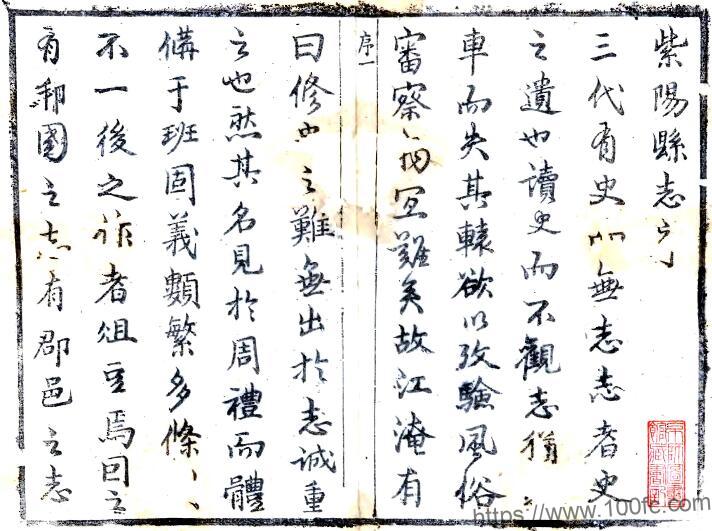 紫陽縣志序
三代有史而無志志者史
之遺也讀史而不觀志猶
車而失其轅欲以攷驗風俗
審察物宜難矣故江淹有
序一
曰修史之難無出於志誠重
之也然其名見於周禮而體
備于班固義類繁多條
不一後之作者俎豆焉因之
有邦國之志有郡邑之志
https://www.100fc.com